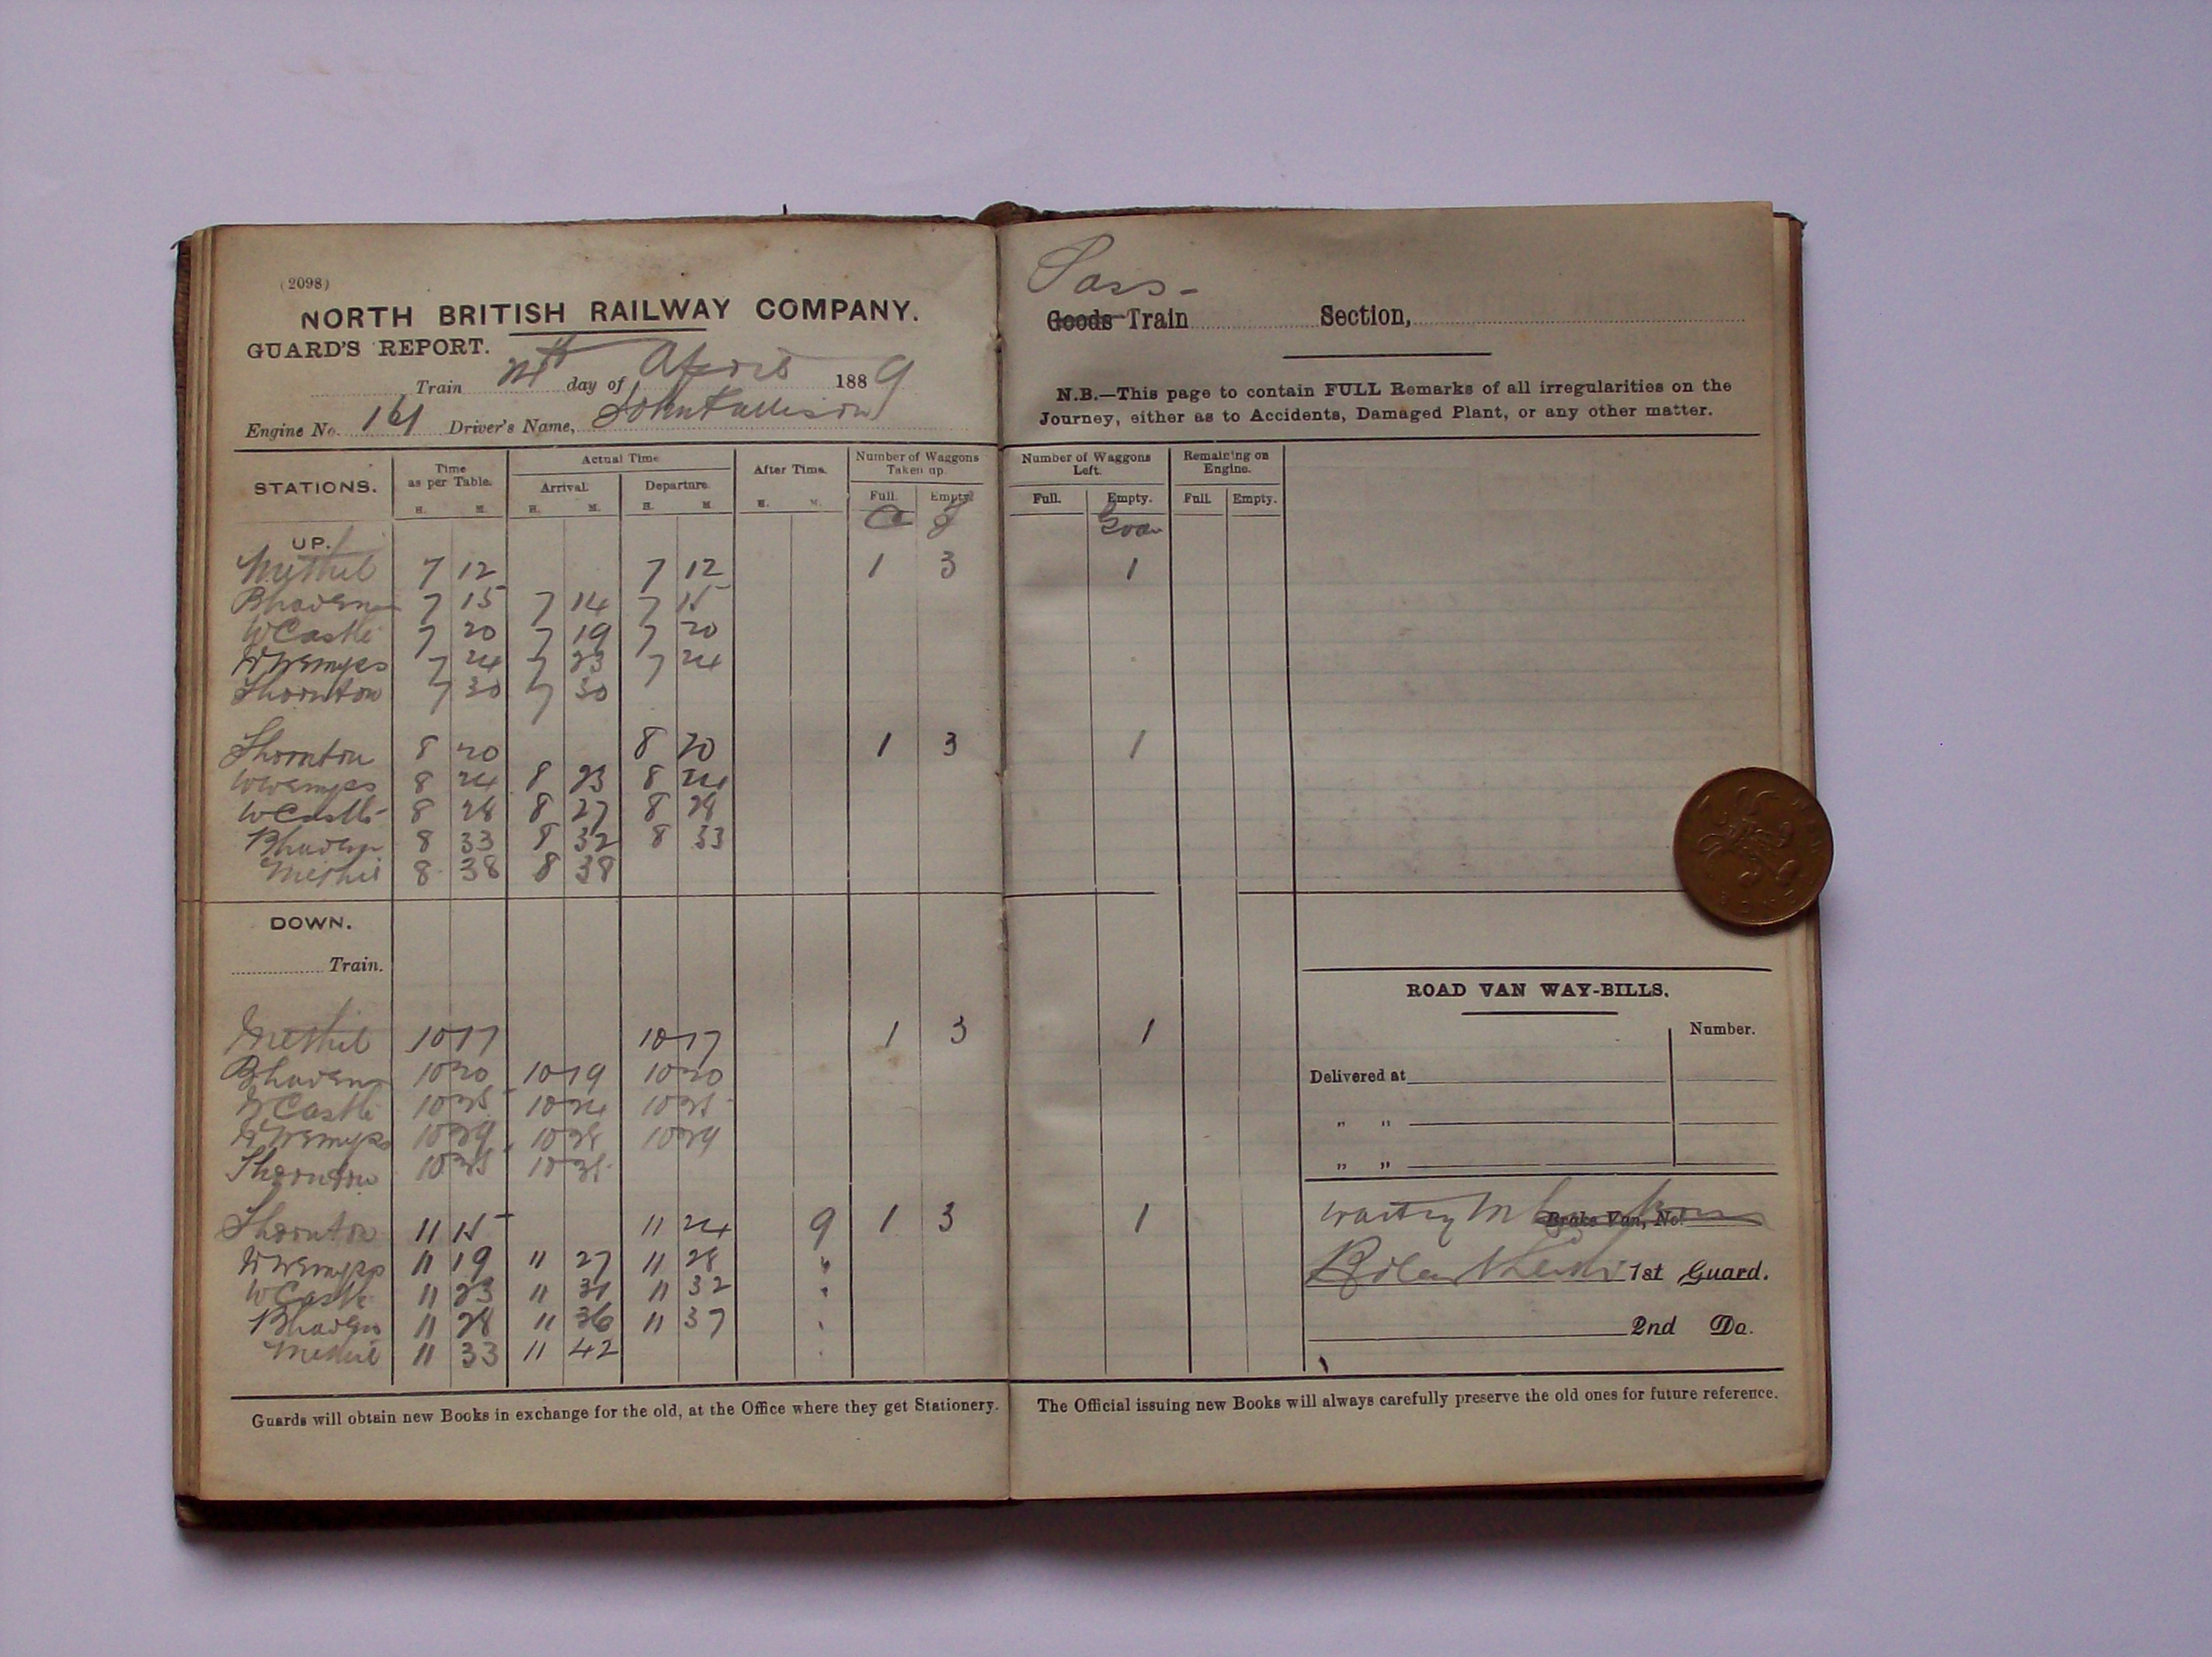 (2098)
NORTH BRITISH RAILWAY COMPANY.
GUARD'S REPORT.
Train 24th day of April 1889
Engine No. 161 Driver's Name, John
STATIONS. Time as per Table. Actual Time After Time. Number of Waggons Taken up.
Arrival. Departure.
H. M. H. M. H. M. H. M. Full. Empty.
UP.
Methil 7 12 7 12 1 3
Bhaven 7 15 7 14 7 15
W Castle 7 20 7 19 7 20
W Wemyss 7 24 7 23 7 24
Thornton 7 30 7 30
Thornton 8 20 8 20 1 3
W Wemyss 8 24 8 23 8 24
W Castle 8 28 8 27 8 28
Bhaven 8 33 8 32 8 33
Methil 8 38 8 38
DOWN.
Train.
Methil 10 17 10 17 1 3
Bhaven 10 20 10 19 10 20
W Castle 10 25 10 24 10 25
W Wemyss 10 29 10 28 10 29
Thornton 10 35 10 35
Thornton 11 15 11 24 9 1 3
W Wemyss 11 19 11 27 11 28 "
W Castle 11 23 11 31 11 32 "
Bhaven 11 28 11 36 11 37 "
Methil 11 33 11 42 "
Guards will obtain new Books in exchange for the old, at the Office where they get Stationery.
Pass-
Goods Train Section,
N.B.—This page to contain FULL Remarks of all irregularities on the
Journey, either as to Accidents, Damaged Plant, or any other matter.
Number of Waggons Left. Remaining on Engine.
Full. Empty. Full. Empty.
1
1
1
1
ROAD VAN WAY-BILLS.
Number.
Delivered at
" "
" "
Waiting Brake Van, No.
1st Guard.
2nd Do.
The Official issuing new Books will always carefully preserve the old ones for future reference.